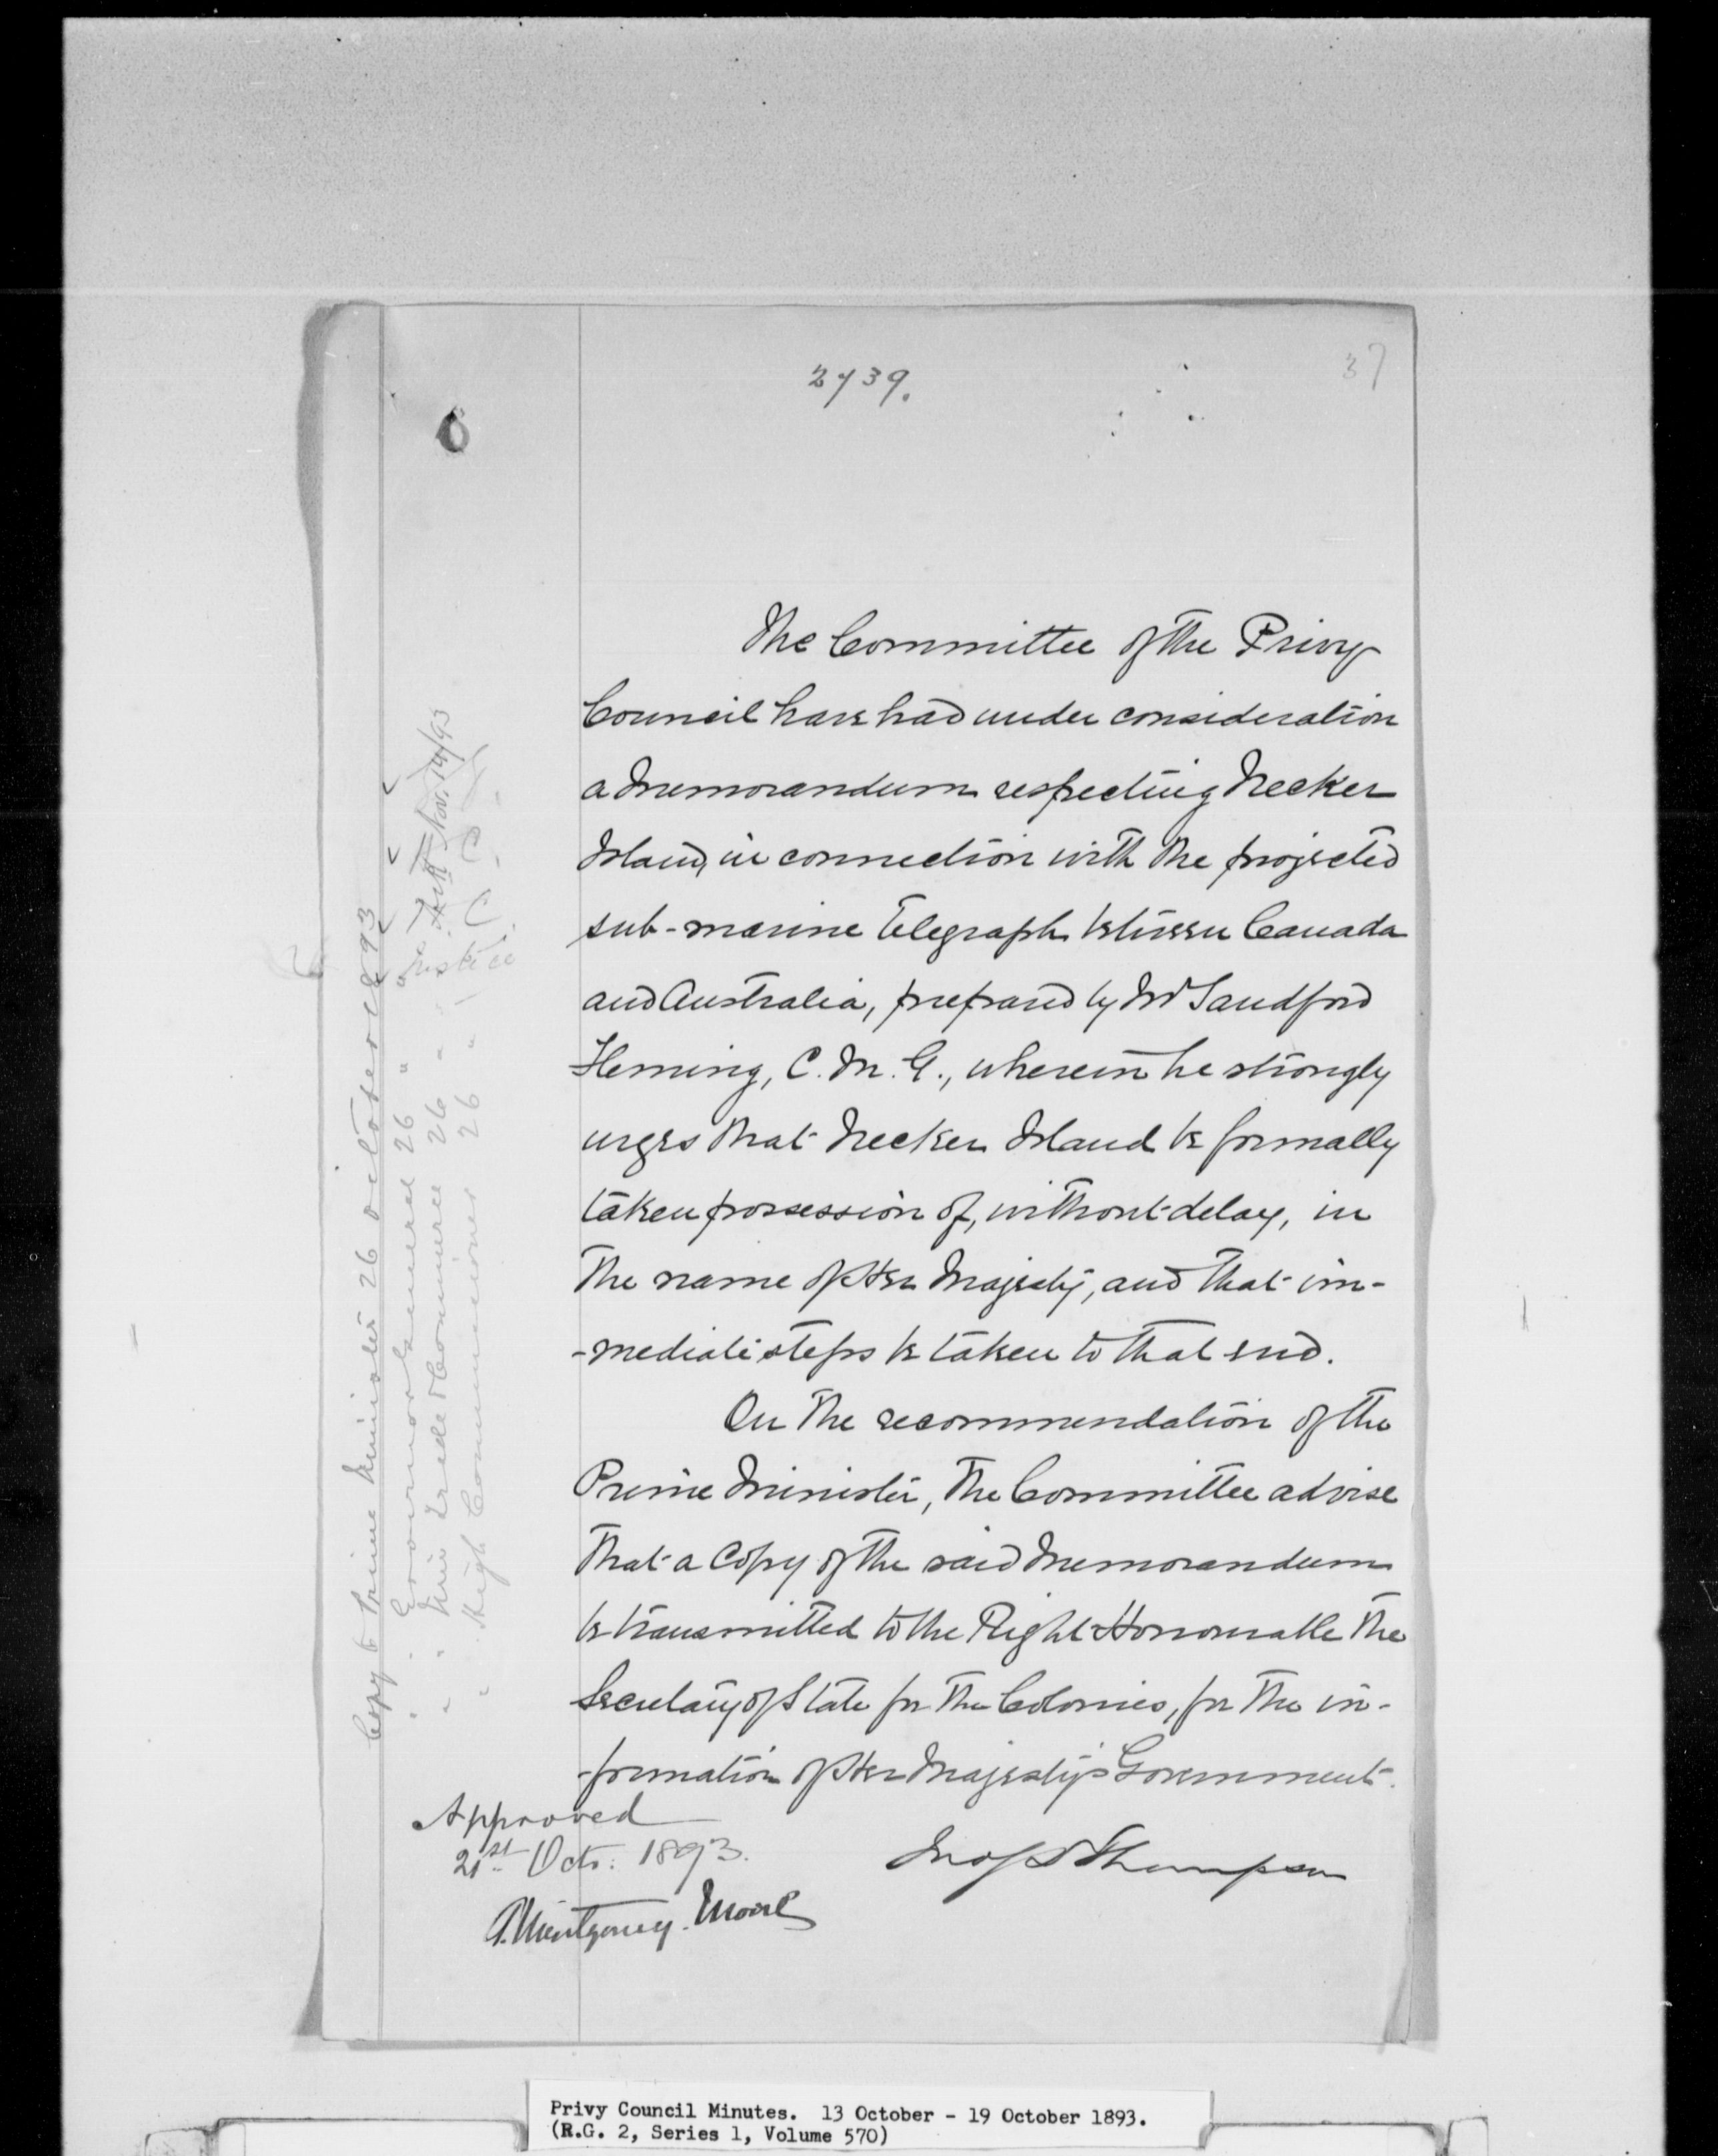 2739.
37
The Committee of the Privy
Council have had under consideration
a Memorandum respecting Necker
Island, in connection with the projected
sub-marine Telegraph between Canada
and Australia, prepared by Mr Sandford
Fleming, C.M.G., wherein he strongly
urges that Necker Island be formally
taken possession of, without delay, in
the name of Her Majesty, and that im-
-mediate steps be taken to that end.
On the recommendation of the
Prime Minister, the Committee advise
that a Copy of the said Memorandum
be transmitted to the Right Honourable the
Secretary of State for the Colonies, for the in-
-formation of Her Majesty's Government.
Approved
21st Octr: 1893.
Jno S D Thompson
A. Montgomery. Moore
Copy to Prime Minister 26 October 1893
" " Governor General 26 " "
" " Min Trade & Commerce 26 "
" " High Commissioner 26 "
Justice
Nov. 14/93
Privy Council Minutes. 13 October - 19 October 1893.
(R.G. 2, Series 1, Volume 570)